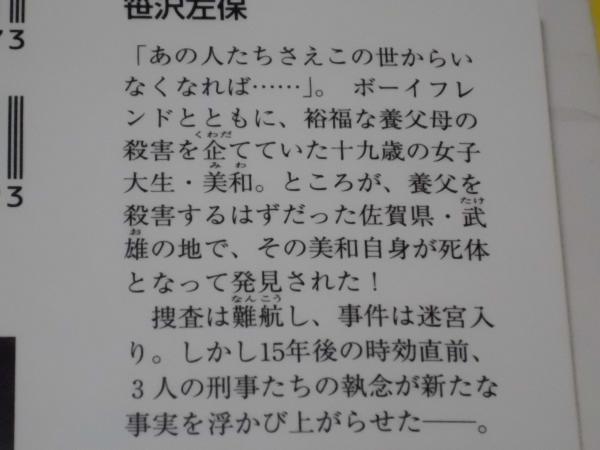 笹沢左保
「あの人たちさえこの世からい
なくなれば……」。ボーイフレ
ンドとともに、裕福な養父母の
殺害を企てていた十九歳の女子
くわだ
大生・美和。ところが、養父を
みわ
殺害するはずだった佐賀県・武
たけ
雄の地で、その美和自身が死体
お
となって発見された！
捜査は難航し、事件は迷宮入
なんこう
り。しかし15年後の時効直前、
3人の刑事たちの執念が新たな
事実を浮かび上がらせた――。
3
3